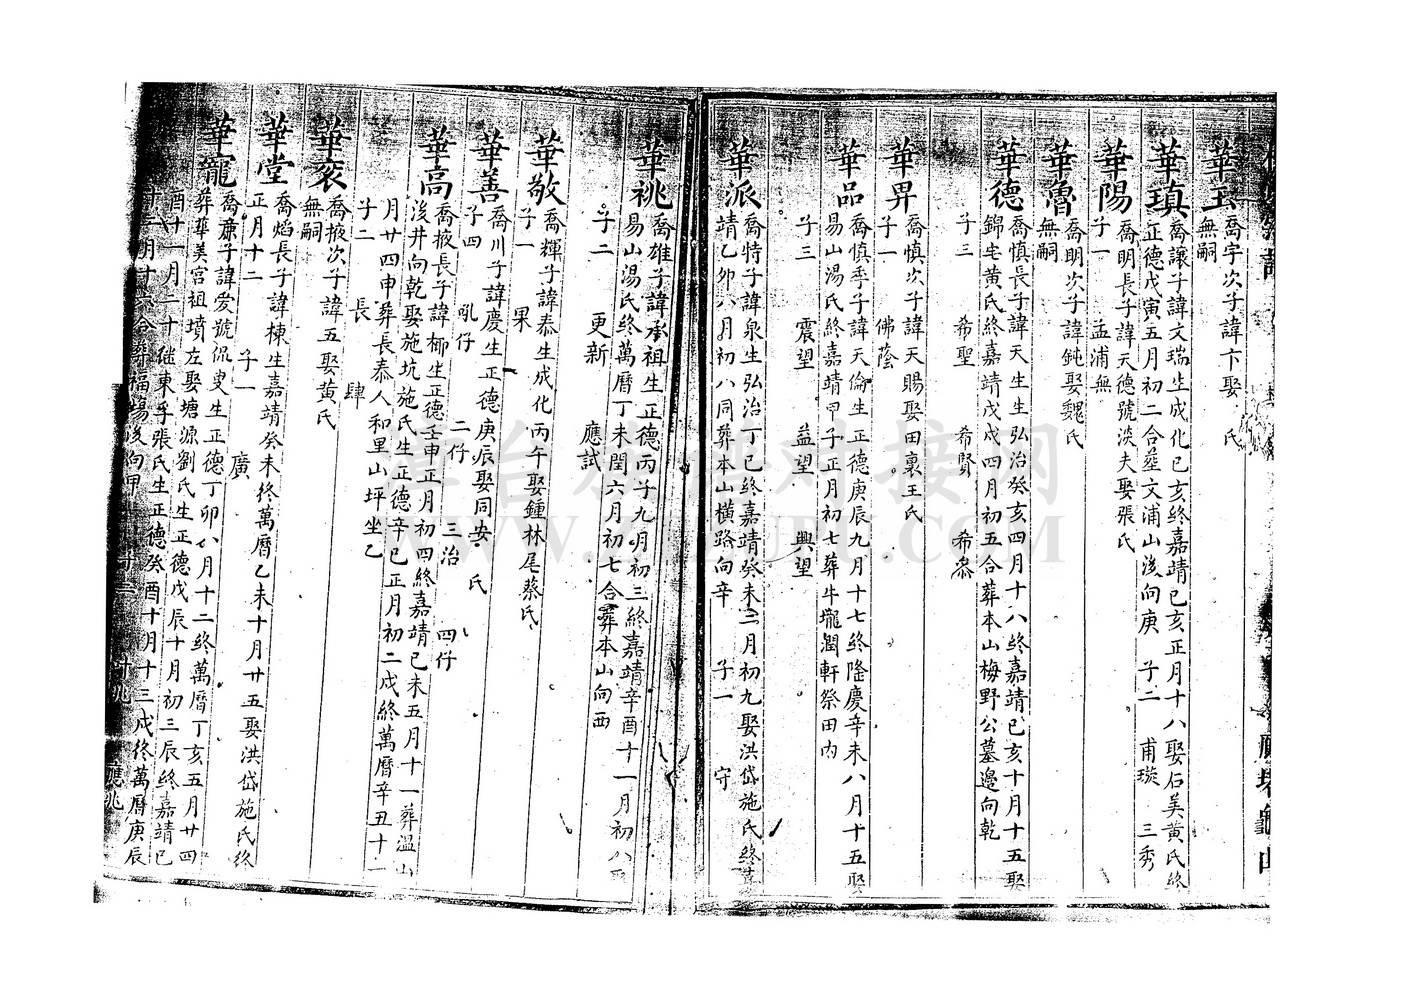 華玉
喬字次子諱卞娶　氏
無嗣
華瑱
喬讓子諱文瑞生成化己亥終嘉靖己亥正月十八娶石美黃氏終
正德戊寅五月初二合葬文浦山後向庚　子二　甫璇　三秀
華陽
喬明長子諱天德號淡夫娶張氏
子一　孟浦無
華魯
喬明次子諱鈍娶魏氏
無嗣
華德
喬慎長子諱天生生弘治癸亥四月十八終嘉靖己亥十月十五娶
錦宅黃氏終嘉靖戊戌四月初五合葬本山梅野公墓邊向乾
子三　希聖　希賢　希恭
華畀
喬慎次子諱天賜娶田裏王氏
子一　佛蔭
華品
喬慎季子諱天倫生正德庚辰九月十七終隆慶辛未八月十五娶
易山湯氏終嘉靖甲子正月初七葬牛壠潤軒祭田内
子三　震望　益望　興望
華派
喬特子諱泉生弘治丁巳終嘉靖癸未三月初九娶洪岱施氏終嘉
靖乙卯八月初八同葬本山橫路向辛　子一　守
華祧
喬雄子諱承祖生正德丙子九月初三終嘉靖辛酉十一月初八娶
易山湯氏終萬曆丁未閏六月初七合葬本山向西
子二　更新　應試
華敬
喬輝子諱泰生成化丙午娶鍾林尾蔡氏
子一　果
華善
喬川子諱慶生正德庚辰娶同安　氏
子四　吼仔　二仔　三治　四仔
華高
喬掖長子諱柳生正德壬申正月初四終嘉靖己未五月十一葬溫山
後井向乾娶施坑施氏生正德辛巳正月初二戌終萬曆辛丑十一
月廿四申葬長泰人和里山坪坐乙
子二　長　肆
華袞
喬掖次子諱五娶黃氏
無嗣
華堂
喬焰長子諱棟生嘉靖癸未終萬曆乙未十月廿五娶洪岱施氏終
正月十二　子一　廣
華寵
喬康子諱愛號侃叟生正德丁卯八月十二終萬曆丁亥五月廿四
葬華美宮祖墳左娶塘源劉氏生正德戊辰十月初三辰終嘉靖己
酉十一月二十繼東孚張氏生正德癸酉十月十三戌終萬曆庚辰
十二月十六合葬福場後向甲
應兆